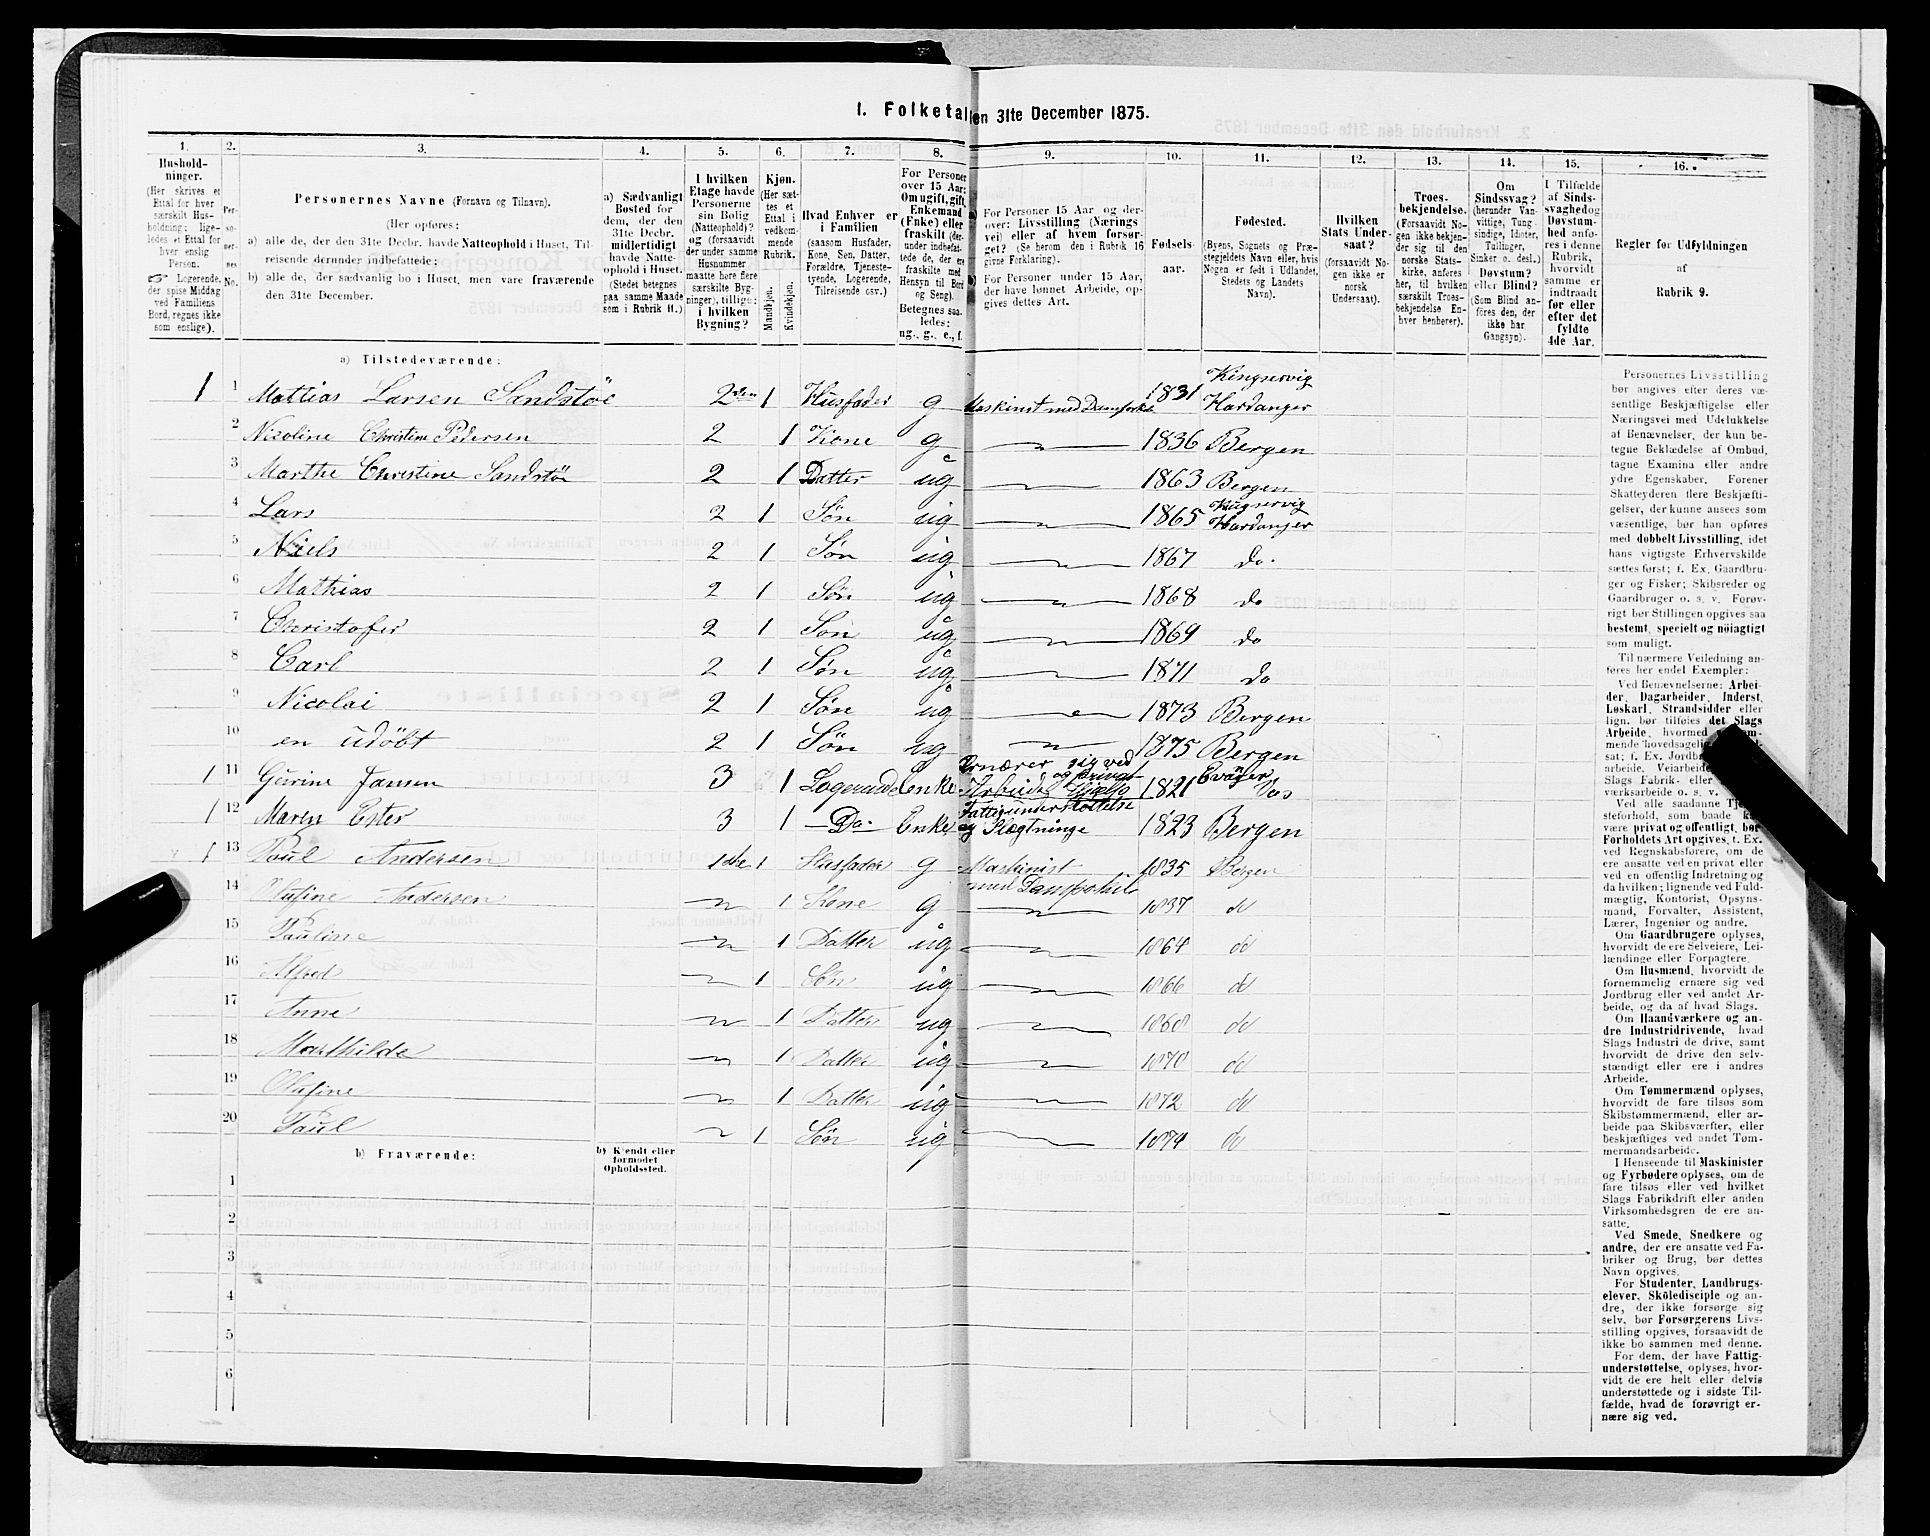 1. Folketal
den 31te December 1875.
1.
Hushold-
ninger.
(Her skrives et
Ettal for hver
særskilt Hus-
holdning: lige-
ledes et Ettal for
hver enslig
Person.
☞ Logerende,
der spise Middag
ved Familiens
Bord, regnes ikke
som enslige).
2.
Per-
so-
ner-
nes
No.
3.
Personernes Navne (Fornavn og Tilnavn).
(Her opføres:
a) alle de, der den 31te Decbr. havde Natteophold i Huset, Til-
reisende derunder indbefattede;
b) alle de, der sædvanlig bo i Huset, men vare fraværende
den 31te December.
4.
a) Sædvanligt
Bosted for
dem, der den
31te Decbr.
midlertidigt
havde Natte-
ophold i Huset.
(Stedet betegnes
paa samme Maade
som i Rubrik 11.)
5.
I hvilken
Etage havde
Personerne
sin Bolig
(Natteophold)?
og (forsaavidt
der under samme
Husnummer
maatte høre flere
særskilte Byg-
ninger), tillige:
i hvilken
Bygning?
6.
Kjøn.
(Her sæt-
tes et
Ettal i
vedkom-
mende
Rubrik.
Mandkjøn.
Kvindekjøn.
7.
Hvad Enhver er
i Familien
(saasom Husfader,
Kone, Søn, Datter,
Forældre, Tjeneste-
tyende, Logerende,
Tilreisende osv.)
8.
For Personer
over 15 Aar:
Om ugift, gift,
Enkemand
(Enke) eller
fraskilt (der-
under indbefat-
tede de, der ere
fraskilte med
Hensyn til Bord
og Seng).
Betegnes saa-
ledes:
ug., g., e., f.
9.
a) For Personer 15 Aar og der-
over: Livsstilling (Nærings-
vei) eller af hvem forsør-
get? (Se herom den i Rubrik 16
givne Forklaring).
b) For Personer under 15 Aar,
der have lønnet Arbeide, op-
gives dettes Art.
10.
Fødsels-
aar.
11.
Fødested.
(Byens, Sognets og Præ-
stegjeldets Navn eller, hvis
Nogen er født i Udlandet,
Stedets og Landets
Navn).
12.
Hvilken
Stats Under-
saat?
(forsaavidt No-
gen ikke er
norsk
Undersaat).
13.
Troes-
bekjendelse.
(Forsaavidt No-
gen ikke bekjen-
der sig til den
norske Stats-
kirke, anføres
her, til hvilken
særskilt Troes-
bekjendelse En-
hver henhører).
14.
Om
Sindssvag?
(herunder Van-
vittige, Tung-
sindige, Idioter,
Tullinger,
Sinker o. desl.)
Døvstum?
eller Blind?
(Som Blind an-
føres den, der
ikke har
Gangsyn).
15.
I Tilfælde
af Sinds-
svaghed og
Døvstum-
hed anfø-
res i denne
Rubrik,
hvorvidt
samme er
indtraadt
før eller
efter det
fyldte
4de Aar.
16.
Regler for Udfyldningen
af
Rubrik 9.
a) Tilstedeværende:
1 1 Mathias Larsen Sandstöe 2den 1 Husfader g Maskinst med Damskib 1831 Kingservig Hardanger
2 Nicoline Christine Pedersen 2 1 Kone g 1836 Bergen
3 Marthe Christine Sandstöe 2 1 Datter ug 1863 Bergen
4 Lars 2 1 Søn ug 1865 Kingservig Hardanger
5 Niels 2 1 Søn ug 1867 do.
6 Mathias 2 1 Søn ug 1868 do
7 Christofer 2 1 Søn ug 1869 do
8 Carl 2 1 Søn ug 1871 do
9 Nicolai 2 1 Søn ug 1873 Bergen
10 en udöbt 2 1 Søn ug 1875 Bergen
1 11 Gurine Jansen 3 1 Logerende Enke Ernærer sig ved Arbeide og privat Hjælp 1821 Evanger Vos
1 12 Maren Ester 3 1 Do. Enke Fattigunderstøttelse og Slægtninge 1823 Bergen
1 13 Paul Andersen 1ste 1 Husfader g Maskinist med Dampskib 1835 Bergen
14 Olufine Andersen 1 Kone g 1837 do
15 Pauline 1 Datter ug 1864 do
16 Alfred 1 Søn ug 1866 do
17 Anne 1 Datter ug 1868 do
18 Marthilde 1 Datter ug 1870 do
19 Olufine 1 Datter ug 1872 do
20 Paul 1 Søn ug 1874 do
b) Fraværende:
b) Kjendt eller
formodet
Opholdssted.
1
2
3
4
5
6
Personernes Livsstilling
bør angives efter deres væ-
sentlige Beskjæftigelse eller
Næringsvei med Udelukkelse
af Benævnelser, der kun be-
tegne Beklædelse af Ombud,
tagne Examina eller andre
ydre Egenskaber. Forener
Skatteyderen flere Beskjæfti-
gelser, der kunne ansees som
væsentlige, bør han opføres
med dobbelt Livsstilling, idet
hans vigtigste Erhvervskilde
sættes først; f. Ex. Gaardbru-
ger og Fisker; Skibsreder og
Gaardbruger o. s. v. Forøv-
rigt bør Stillingen opgives saa
bestemt, specielt og nöiagtigt
som muligt.
Til nærmere Veiledning an-
føres her endel Exempler:
Ved Benævnelserne: Arbei-
der Dagarbeider Inderst,
Løskarl, Strandsidder eller
lign. bør tilføies det Slags
Arbeide, hvormed
mende hovedsagelig
sat; f. Ex. Jordb
arbeide, Veiarbeide
Slags Fabrik- eller
værksarbeide o. s. v.
Ved alle saadanne Tje
steforhold, som baade k
være privat og offentlig, bør
Forholdets Art opgives, t. Ex.
ved Regnskabsførere, om de
ere ansatte ved en privat eller
ved en offentlig Indretning og
da hvilken; lignende ved Fuld-
mægtig, Kontorist, Opsyns-
mand, Forvalter, Assistent,
Lærer, Ingeniør og andre.
Om Gaardbrugere oplyses,
hvorvidt de ere Selveiere, Lei-
lændinge eller Forpagtere.
Om Husmænd, hvorvidt de
fornemmelig ernære sig ved
Jordbrug eller ved andet Ar-
beide, og da af hvad Slags.
Om Haandværkere og an-
dre Industridrivende, hvad
Slags Industri de drive, samt
hvorvidt de drive den selv-
stændigt eller ere i andres
Arbeide.
Om Tømmermænd oplyses,
hvorvidt de fare tilsøs som
Skibstømmermænd, eller ar-
beide paa Skibsværfter, eller
beskjæftiges ved andet Tøm-
mermandsarbeide.
I Henseende til Maskinister
og Fyrbødere oplyses, om de
fare tilsøs eller ved hvilket
Slags Fabrikdrift eller anden
Virksomhedsgren de ere an-
satte.
Ved Smede, Snedkere og
andre, der ere ansatte ved Fa-
briker og Brug, bør dettes
Navn opgives.
For Studenter, Landbrugs-
elever, Skōledisciple og an-
dre, der ikke forsørge sig
selv, bør Forsørgerens Livs-
stilling opgives, forsaavidt de
ikke bo sammen med denne.
For dem, der have Fattig-
understøttelse, oplyses, hvor-
vidt de ere helt eller delvis
understøttede og i sidste Til-
fælde, hvad de forøvrigt er-
nære sig ved.